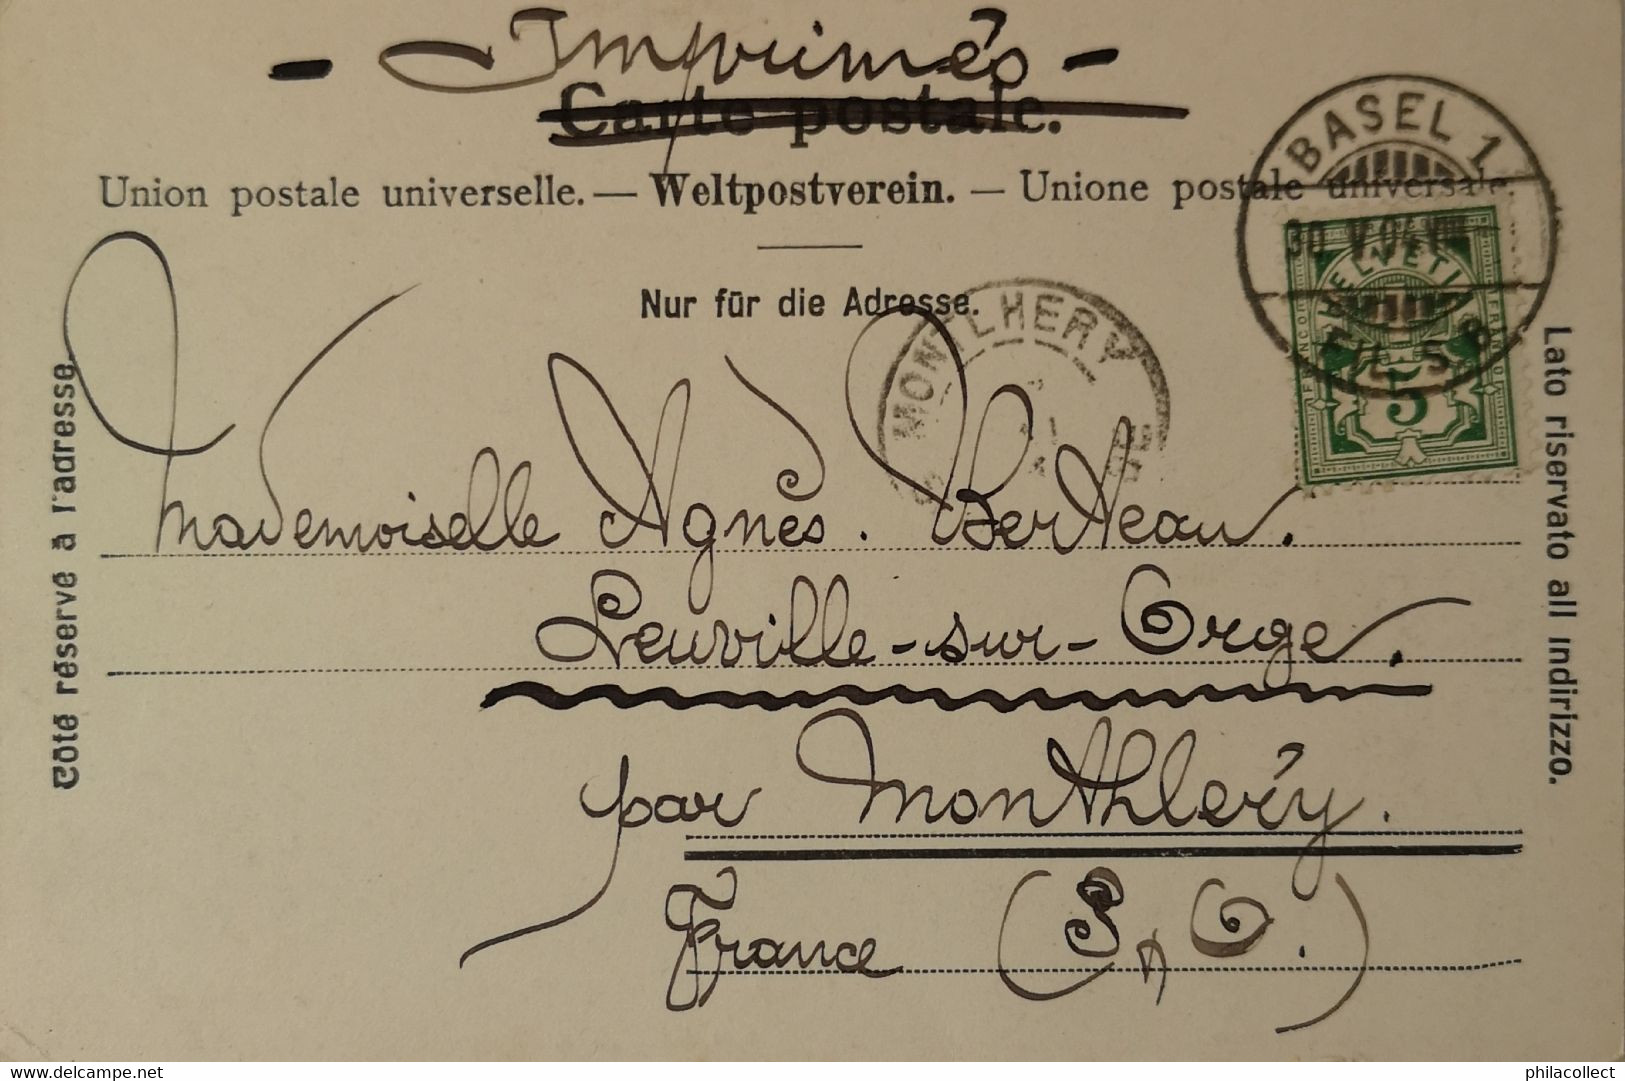 - Imprimés -
Carte postale.
Union postale universelle. — Weltpostverein. — Unione postale universale.
Nur für die Adresse.
Côté réservé à l'adresse.
Lato riservato all indirizzo.
BASEL 1.
30 V.04.VIII
HELVETIA
FRANCO
FRANCO
5
MONTLHERY
Mademoiselle Agnès. Berteau.
Leuville-sur-Orge.
par Monthléry.
France (S. O.)
www.delcampe.net
philacollect